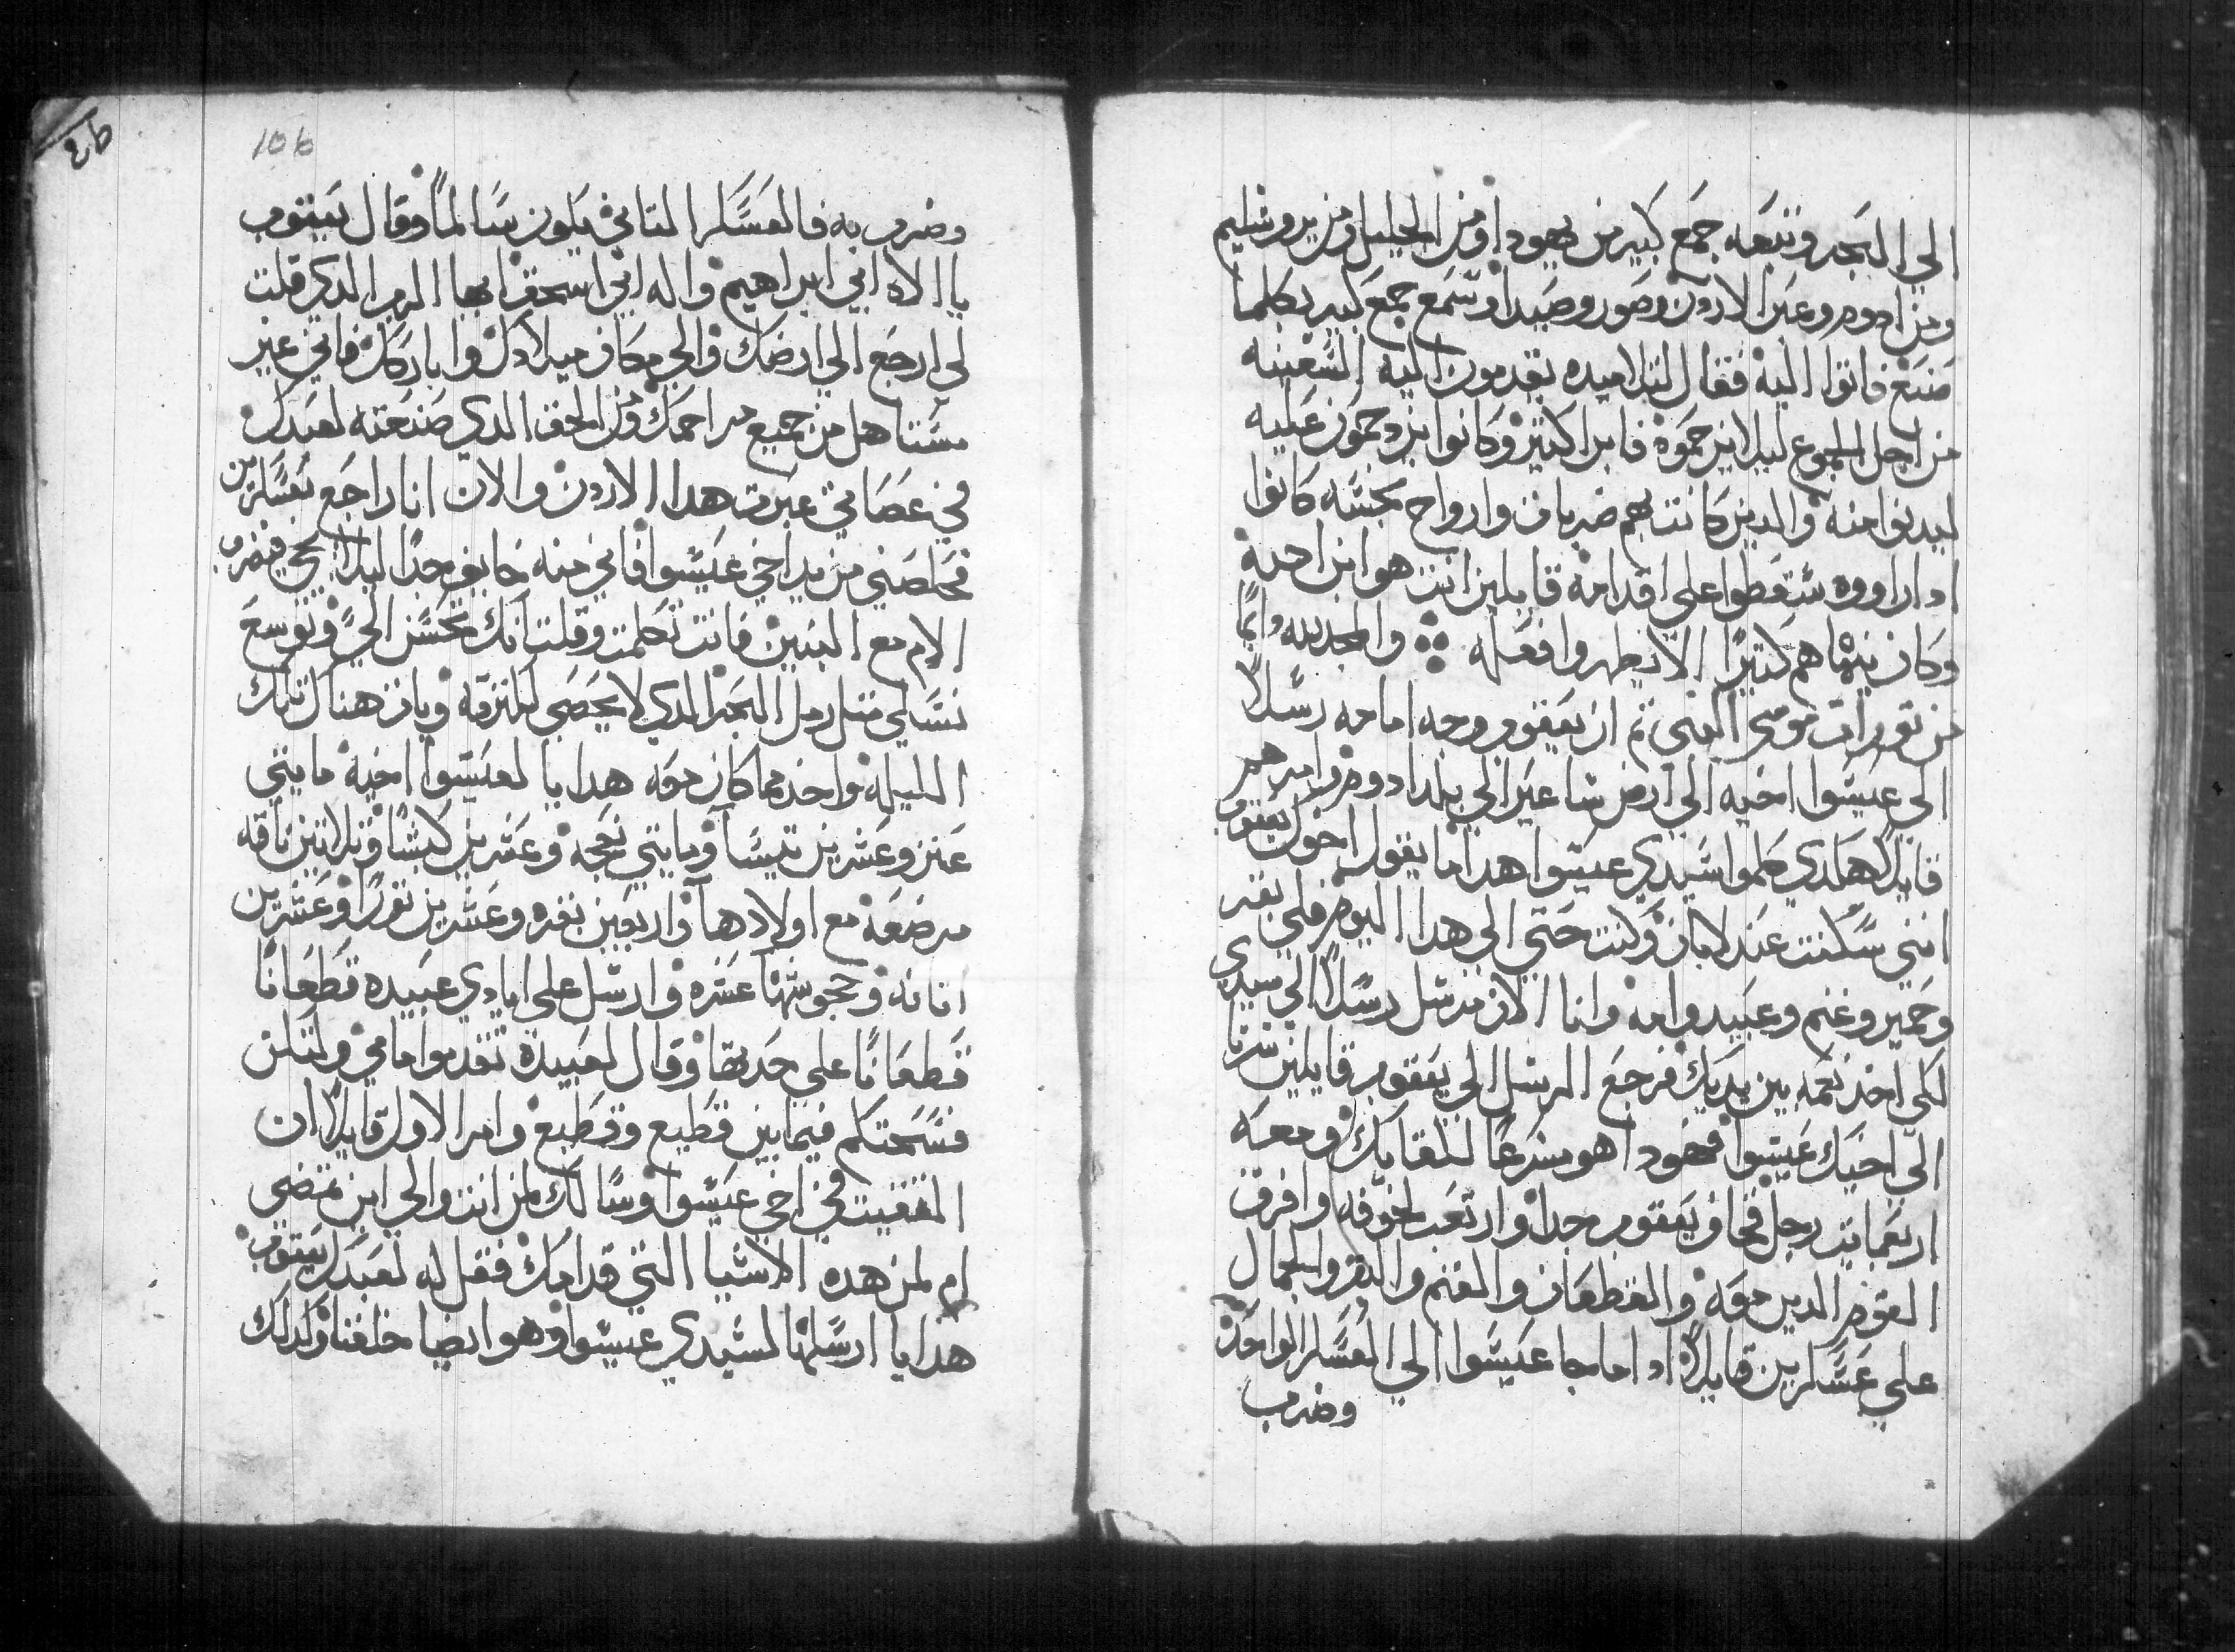 الي البحر وتبعه جمع كبير من يهودا ومن الجليل ومن يروشليم
ومن ادوم وعبر الاردن وصور وصيدا وسمع جمع كبير بكلما
صنع فاتوا اليه فقال لتلاميده يقدمون اليه السفينه
من اجل الجموع ليلا يزحموه فابرا كتير وكانوا يزدحمون عليه
ليدنوا منه والدين كانت بهم ضربات وارواح نجسه كانوا
ادا راووه سقطوا على اقدامه قايلين انت هو ابن الله
وكان ينهاهم كتيرًا الا يظهروا فعله والمجد لله دايمًا
من تورات موسى النبي تم ان يعقوب وجه امامه رسلاً
الى عيسوا اخيه الي ارض ساعير الي بلد ادوم وامرهم
قايلاً هكدي كلموا سيدي عيسوا هدا ما يقول اخوك يعقوب
انني سكنت عند لابان وكنت حتى الى هدا اليوم فلي بقر
وحمير وغنم وعبيد وامه وانا الان مرسل رسلاً الى سيدي
لكى اخد نعمه بين يديك فرجع الرسل الي يعقوب قايلين سرنا
الي اخيك عيسوا فهودا هو مسرعًا للقايك ومعه
اربعمايت رجل فخاف يعقوب جدا وارتعب لخوفه وافرق
القوم الدين معه والقطعان والغنم والبقر والجمال
على عسكرين قايلاً ادا ما جا عيسوا الي العسكر الواحد
وضرب
106
وضرب به فالعسكر التاني يكون سالمًا وقال يعقوب
يا الاه ابي ابراهيم واله ابي اسحق ايها الرب الدي قلت
لي ارجع الي ارضك والي مكان ميلادك واباركك فاني غير
مستاهل من جميع مراحمك ومن الحق الدي صنعته لعبدك
في عصاتي عبرت هدا الاردن والان انا راجع بعسكرين
فخلصني من يد اخي عيسوا فاني منه خايف جدًا ليلا يجي فيضرب
الام مع البنين فانت تكلمت وقلت انك تحسن الي وتوسع
نسلي متل رمل البحر الدي لا يحصي لكترته وبات هناك تلك
الليله واخد مما كان معه هدايا لعيسوا اخيه مايتي
عنز وعشرين تيسًا ومايتي نعجه وعشرين كبشًا وتلاتين ناقه
مرضعه مع اولادها واربعين بقره وعشرين تورًا وعشرين
اتانه وجحوشها عشره وارسل على ايادي عبيده قطعانًا
قطعانًا علي حديها وقال لعبيده تقدموا امامي ولتكن
فسحتكم فيما بين قطيع وقطيع وامر الاول قايلاً ان
القيت في اخي عيسوا وسالك لمن انت والي اين تمضي
ام لمن هده الاشيا التي قدامك فقل له لعبدك يعقوب
هدايا ارسلها لسيدي عيسوا وهو ايضا خلفنا وكدلك